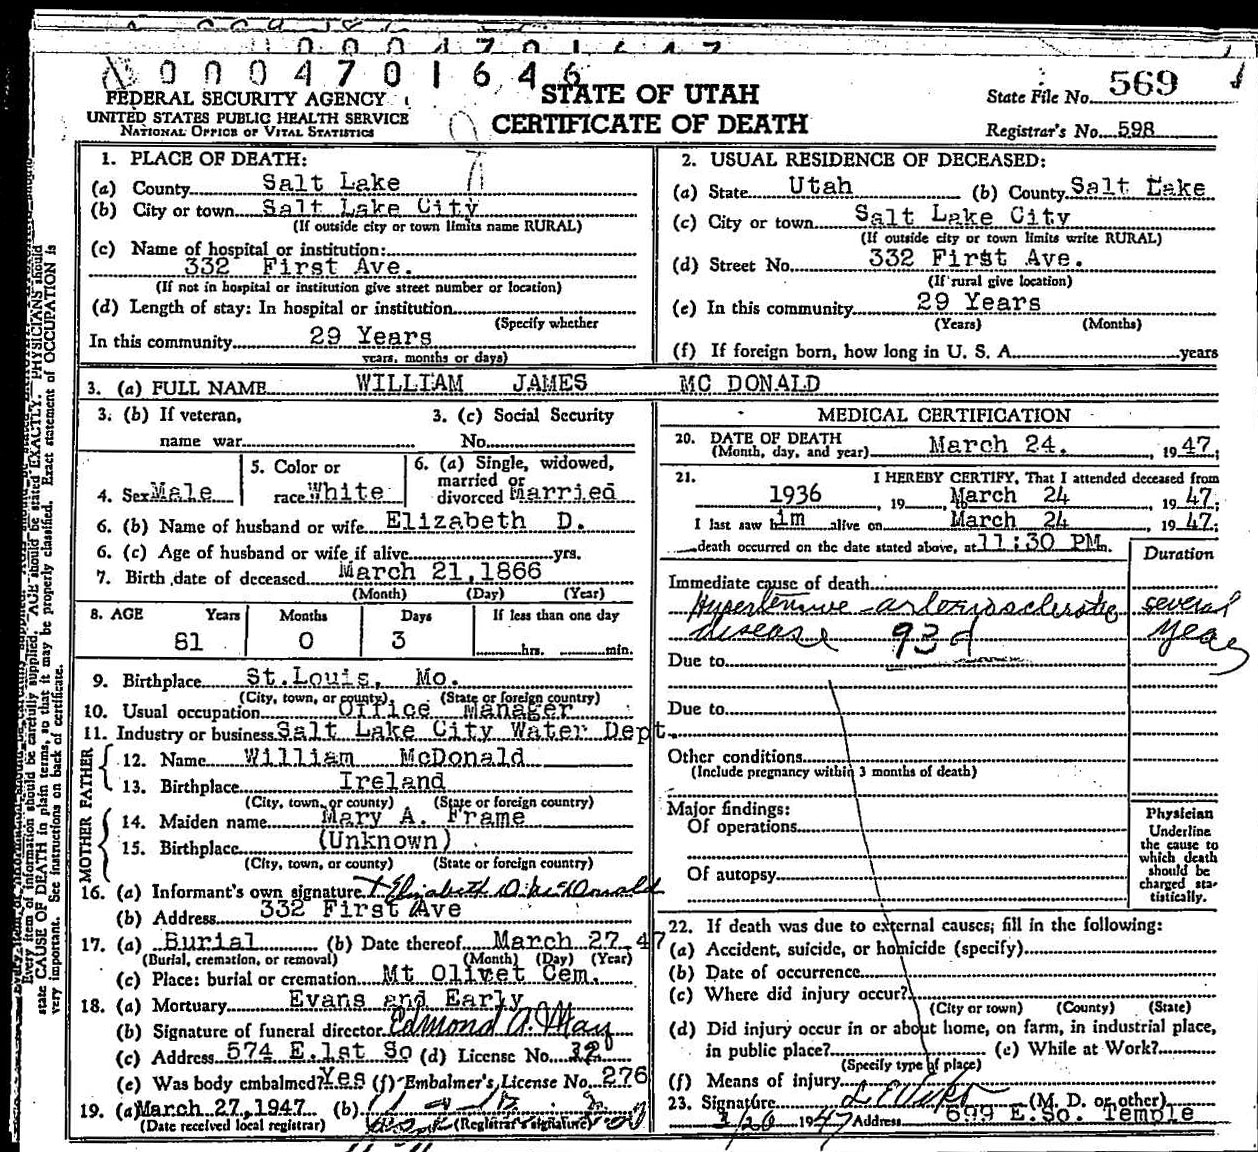 0004701646
FEDERAL SECURITY AGENCY
UNITED STATES PUBLIC HEALTH SERVICE
NATIONAL OFFICE OF VITAL STATISTICS
STATE OF UTAH
CERTIFICATE OF DEATH
State File No. 569
Registrar's No. 598
1. PLACE OF DEATH:
(a) County Salt Lake
(b) City or town Salt Lake City
(If outside city or town limits name RURAL)
(c) Name of hospital or institution:
332 First Ave.
(If not in hospital or institution give street number or location)
(d) Length of stay: In hospital or institution
(Specify whether
In this community 29 Years
years, months or days)
2. USUAL RESIDENCE OF DECEASED:
(a) State Utah (b) County Salt Lake
(c) City or town Salt Lake City
(If outside city or town limits write RURAL)
(d) Street No. 332 First Ave.
(If rural give location)
(e) In this community 29 Years
(Years) (Months)
(f) If foreign born, how long in U. S. A. years
3. (a) FULL NAME WILLIAM JAMES MC DONALD
3. (b) If veteran, 3. (c) Social Security
name war No.
4. Sex Male
5. Color or
race White
6. (a) Single, widowed,
married or
divorced Married
6. (b) Name of husband or wife Elizabeth D.
6. (c) Age of husband or wife if alive yrs.
7. Birth date of deceased March 21, 1866
(Month) (Day) (Year)
8. AGE Years Months Days If less than one day
81 0 3 hrs. min.
9. Birthplace St.Louis, Mo.
(City, town, or county) (State or foreign country)
10. Usual occupation Office Manager
11. Industry or business Salt Lake City Water Dept.
FATHER
12. Name William McDonald
13. Birthplace Ireland
(City, town, or county) (State or foreign country)
MOTHER
14. Maiden name Mary A. Frame
15. Birthplace (Unknown)
(City, town, or county) (State or foreign country)
16. (a) Informant's own signature Elizabeth D. McDonald
(b) Address 332 First Ave
17. (a) Burial (b) Date thereof March 27, 47
(Burial, cremation, or removal) (Month) (Day) (Year)
(c) Place: burial or cremation Mt Olivet Cem.
18. (a) Mortuary Evans and Early
(b) Signature of funeral director Edmond A. May
(c) Address 574 E.1st So (d) License No.
(e) Was body embalmed? Yes (f) Embalmer's License No. 276
19. (a) March 27, 1947 (b)
(Date received local registrar) (Registrar's signature)
MEDICAL CERTIFICATION
20. DATE OF DEATH
(Month, day, and year) March 24. , 1947;
21. I HEREBY CERTIFY, That I attended deceased from
1936 , 19 to March 24 , 1947;
I last saw him alive on March 24 1947;
death occurred on the date stated above, at 11:30 PM m.
Duration
Immediate cause of death
Hypertensive arteriosclerotic several
disease 93d years
Due to
Due to
Other conditions
(Include pregnancy within 3 months of death)
Major findings:
Of operations
Of autopsy
Physician
Underline
the cause to
which death
should be
charged sta-
tistically.
22. If death was due to external causes; fill in the following:
(a) Accident, suicide, or homicide (specify)
(b) Date of occurrence
(c) Where did injury occur?
(City or town) (County) (State)
(d) Did injury occur in or about home, on farm, in industrial place,
in public place? (e) While at Work?
(Specify type of place)
(f) Means of injury
23. Signature (M. D. or other)
1947 Address 699 E.So. Temple
Every item of information should be carefully supplied. AGE should be stated EXACTLY. PHYSICIANS should
state CAUSE OF DEATH in plain terms, so that it may be properly classified. Exact statement of OCCUPATION is
very important. See instructions on back of certificate.